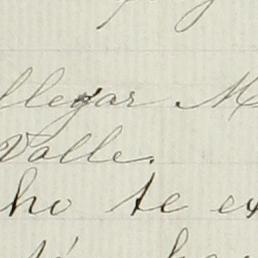 llegar M
Valle.
ho te ex